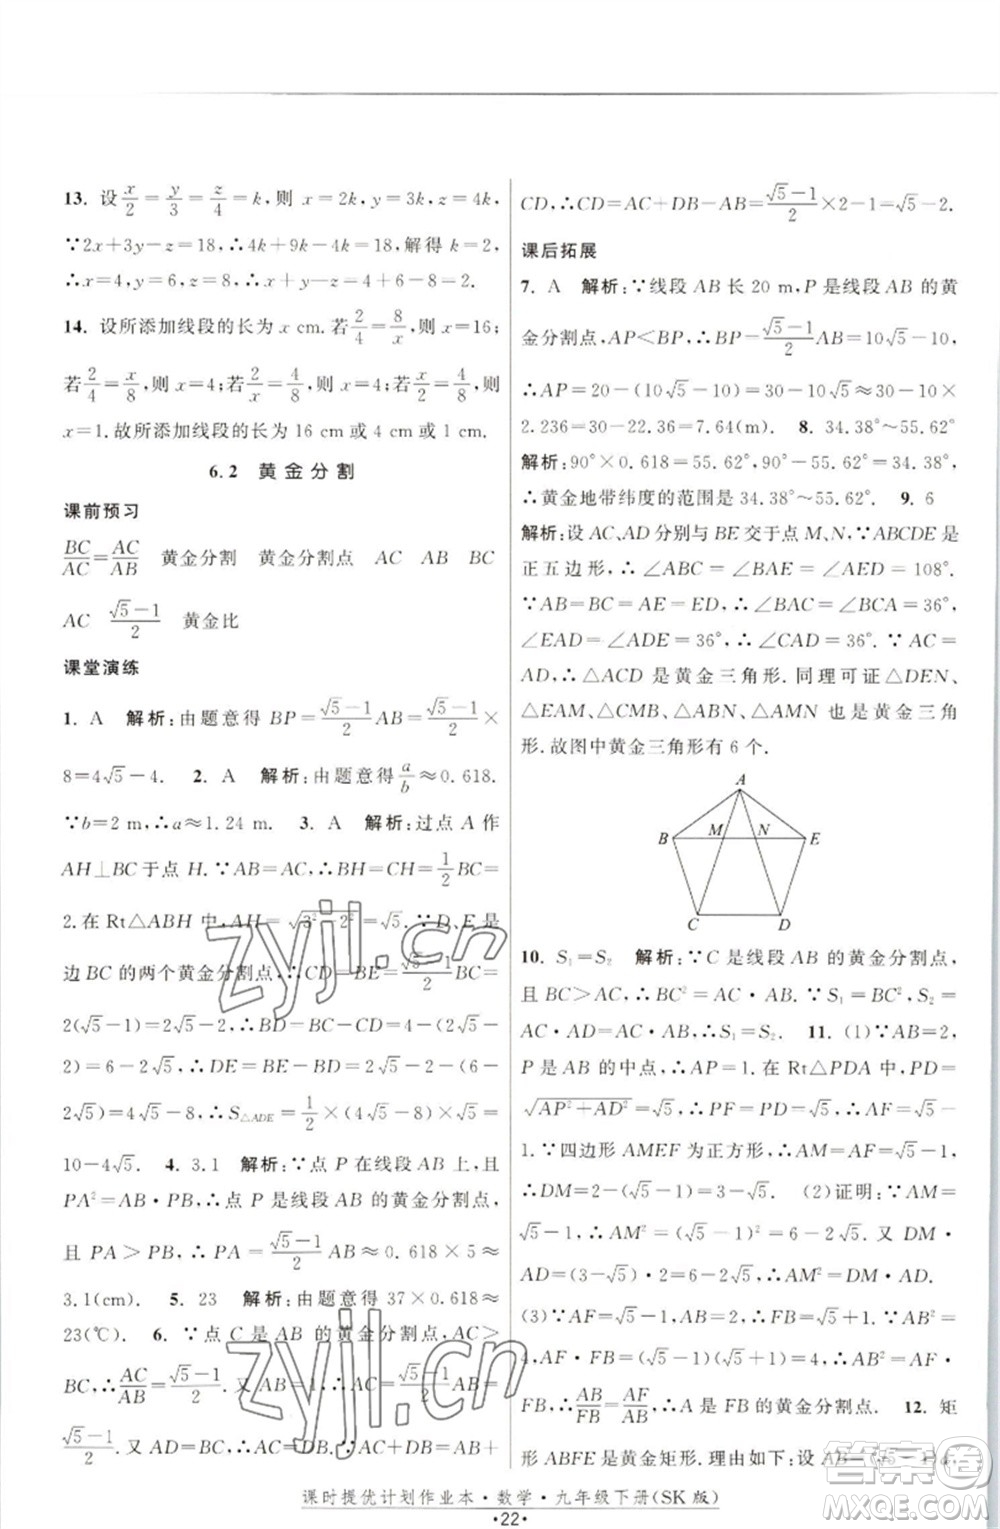 13. 设x/2=y/3=z/4=k,则 x=2k,y=3k,z=4k.
∵2x+3y-z=18,∴4k+9k-4k=18,解得 k=2,
∴x=4,y=6,z=8,∴x+y-z=4+6-8=2.
14. 设所添加线段的长为 x cm.若2/4=8/x,则 x=16;
若2/4=x/8,则 x=4;若2/x=4/8,则 x=4;若x/2=4/8,则
x=1.故所添加线段的长为 16 cm 或 4 cm 或 1 cm.
6.2 黄金分割
课前预习
BC/AC=AC/AB 黄金分割 黄金分割点 AC AB BC
AC (√5-1)/2 黄金比
课堂演练
1. A 解析:由题意得 BP=(√5-1)/2AB=(√5-1)/2×
8=4√5-4. 2. A 解析:由题意得a/b≈0.618.
∵b=2 m,∴a≈1.24 m. 3. A 解析:过点 A 作
AH⊥BC于点 H.∵AB=AC,∴BH=CH=1/2BC=
2.在 Rt△ABH 中,AH=√(3²-2²)=√5.∵D、E 是
边BC的两个黄金分割点,∴CD=BE=(√5-1)/2BC=
2(√5-1)=2√5-2,∴BD=BC-CD=4-(2√5-2)
=6-2√5,∴DE=BE-BD=2√5-2-(6-
2√5)=4√5-8,∴S△ADE=1/2×(4√5-8)×√5=
10-4√5. 4. 3.1 解析:∵点 P 在线段 AB 上,且
PA²=AB·PB,∴点 P 是线段 AB 的黄金分割点,
且 PA>PB,∴PA=(√5-1)/2AB≈0.618×5≈
3.1(cm). 5. 23 解析:由题意得 37×0.618≈
23(℃). 6. ∵点 C 是 AB 的黄金分割点,AC>
BC,∴AC/AB=(√5-1)/2.又∵AB=2,∴AC=
(√5-1)/2.又 AD=BC,∴AC=DB=
CD,∴CD=AC+DB-AB=(√5-1)/2×2-1=√5-2.
课后拓展
7. A 解析:∵线段AB长 20 m,P是线段AB的黄
金分割点,AP<BP,∴BP=(√5-1)/2AB=10√5-10,
∴AP=20-(10√5-10)=30-10√5≈30-10×
2.236=30-22.36=7.64(m). 8. 34.38°~55.62°
解析:90°×0.618=55.62°,90°-55.62°=34.38°,
∴黄金地带纬度的范围是34.38°~55.62°. 9. 6
解析:设AC、AD分别与BE交于点M、N.∵ABCDE是
正五边形,∴∠ABC=∠BAE=∠AED=108°.
∵AB=BC=AE=ED,∴∠BAC=∠BCA=36°,
∠EAD=∠ADE=36°,∴∠CAD=36°.∵AC=
AD,∴△ACD是黄金三角形.同理可证△DEN、
△EAM、△CMB、△ABN、△AMN 也是黄金三角
形.故图中黄金三角形有 6 个.
A
B M N E
C D
10. S₁=S₂ 解析:∵C是线段AB的黄金分割点,
且 BC>AC,∴BC²=AC·AB.∵S₁=BC²,S₂=
AC·AD=AC·AB,∴S₁=S₂. 11. (1)∵AB=2,
P是AB的中点,∴AP=1.在 Rt△PDA中,PD=
√(AP²+AD²)=√5.∵PF=PD=√5,∴AF=√5-
1.∵四边形 AMEF 为正方形,∴AM=AF=√5-1,
∴DM=2-(√5-1)=3-√5. (2)证明:∵AM=
√5-1,∴AM²=(√5-1)²=6-2√5.又 DM·
AD=(3-√5)·2=6-2√5,∴AM²=DM·AD.
(3)∵AF=√5-1,AB=2,∴FB=√5+1.∵AB²=
4,AF·FB=(√5-1)(√5+1)=4,∴AB²=AF·
FB,∴AB/FB=AF/AB,∴A 是 FB 的黄金分割点. 12. 矩
形ABFE是黄金矩形.理由如下:设 AB=(√5-1)a,
课时提优计划作业本·数学·九年级下册(SK版)
·22·
zyjl.cn
zyjl.cn
答案圈
MXQE.COM